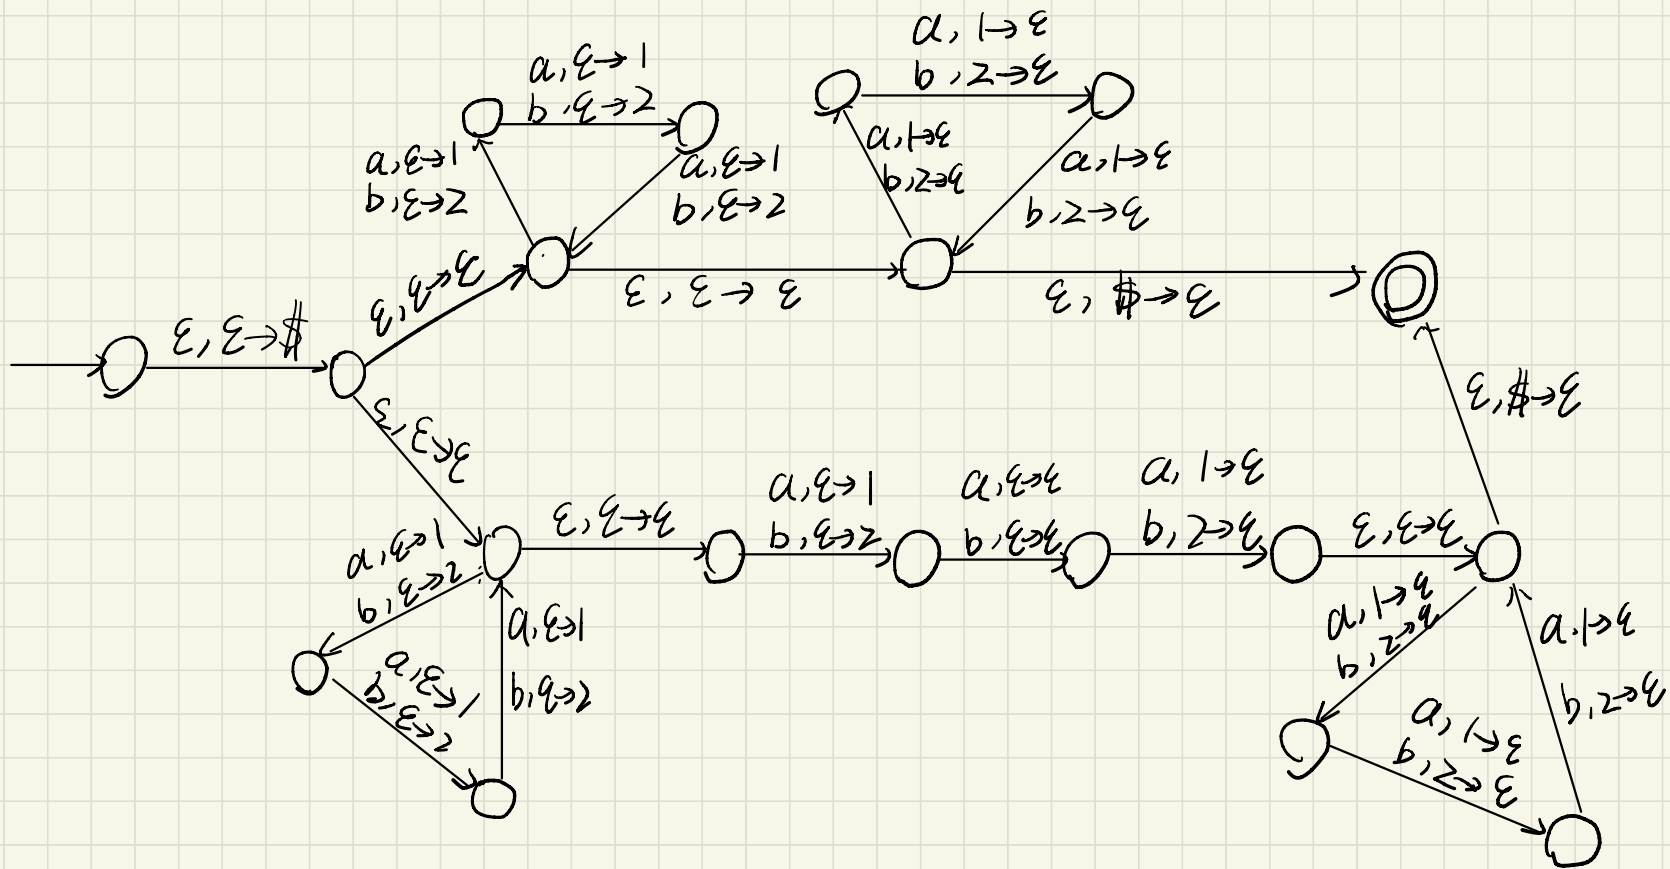 a, ε→1
b, ε→2
a, ε→1
b, ε→2
a, ε→1
b, ε→2
a, 1→ε
b, 2→ε
a, 1→ε
b, 2→ε
a, 1→ε
b, 2→ε
ε, ε→$
ε, ε→ε
ε, ε→ε
ε, $→ε
ε, ε→ε
ε, $→ε
ε, ε→ε
a, ε→1
b, ε→2
a, ε→ε
b, ε→ε
a, 1→ε
b, 2→ε
ε, ε→ε
a, ε→1
b, ε→2
a, ε→1
b, ε→2
a, ε→1
b, ε→2
a, 1→ε
b, 2→ε
a, 1→ε
b, 2→ε
a, 1→ε
b, 2→ε